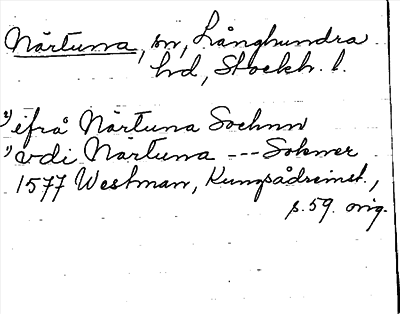 Närtuna, sn, Långhundra
hd, Stockh. l.
2) ifrå Närtuna Sochnn
1) vdi Närtuna --- Sokner
1577 Westman, Kungsådreinst.,
s. 59. orig.